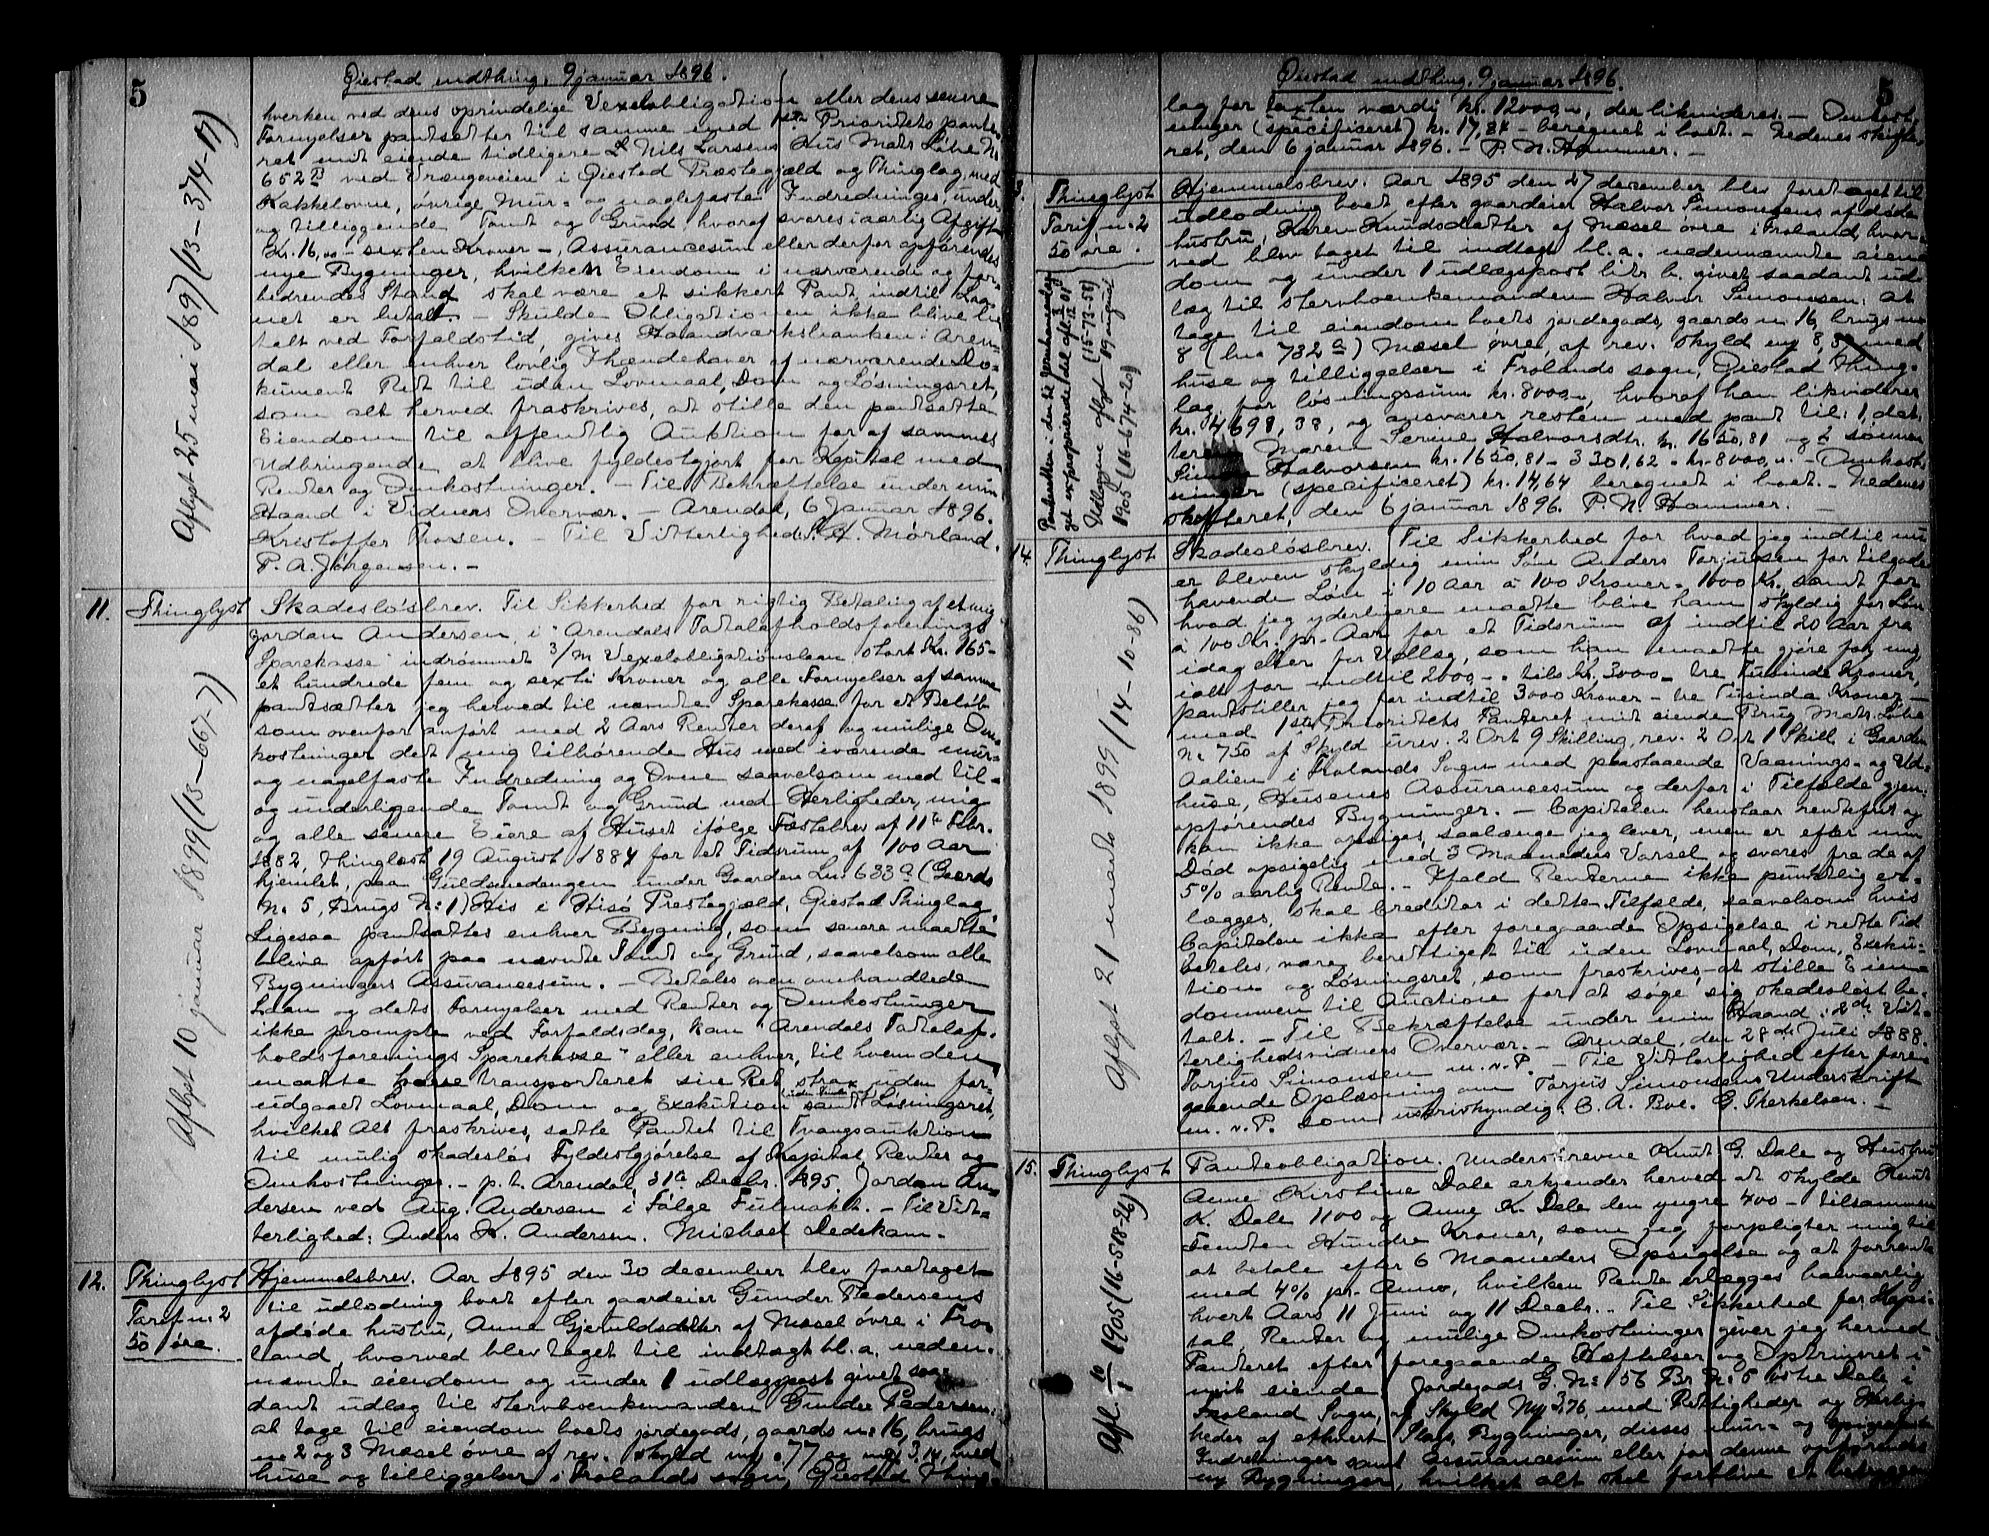 5
Øiestad indthing, 9 januar 1896.
hverken ved dens oprindelige Vexelobligation eller dens senere
Fornyelser pantsætter til samme med 1ste Prioritets pante-
ret mit eiende tidligere Nils Larsens Hus Matr. Løbe No
652 ved Vrængeveien i Øiestad Præstegjæld og Thinglag, med
Kakkelovne, øvrige Mur- og naglefaste Indredninger, under
og tilliggende Tomt og Grund, hvoraf svares i aarlig Afgift
Kr. 16,00 - sexten Kroner -, Assurancesum eller derfor opførendes
nye Bygninger, hvilken Eiendom i nærværende og for-
bedrendes Stand skal være et sikkert Pant indtil Laa-
net er betalt. - Skulde Obligationen ikke blive be-
talt ved Forfaldstid, gives Haandværksbanken i Aren-
dal eller enhver lovlig Ihændehaver af nærværende Do-
kument Ret til uden Lovmaal, Dom og Løsningsret,
som alt herved fraskrives, at stille den pantsatte
Eiendom til offentlig Auktion for af sammes
Udbringende at blive fyldestgjort for Kapital med
Renter og Omkostninger. - Til Bekræftelse under min
Haand i Vidners Overvær. - Arendal, 6 Januar 1896.
Kristoffer Thorsen. - Til Vitterlighed: S. H. Mørland.
P. A. Jørgensen. -
Aflyst 25 mai 1897 (13-374-17)
11. Thinglyst Skadesløsbrev. Til Sikkerhed for rigtig Betaling af et mig
Jordan Andersen, i "Arendals Totalafholdsforenings
Sparekasse" indrømmet 3/m Vexelobligationslaan, stort Kr. 165-
et hundrede fem og sexti Kroner og alle Fornyelser af samme
pantsætter jeg herved til nævnte Sparekasse for et Beløb
som ovenfor anført med 2 Aars Renter deraf og mulige Om-
kostninger det mig tilhørende Hus med iværende mur-
og nagelfaste Indredning og Ovne saavelsom med til-
og underliggende Tomt og Grund med Herligheder, mig
og alle senere Eiere af Huset ifølge Fæstebrev af 11te Febr.
1882, thinglæst 19 August 1884 for et Tidsrum af 100 Aar
hjemlet, paa Guldsmedengen under Gaarden Ln. 633a (Gaards
No. 5, Brugs No: 1) His i Hisø Prestegjæld, Øiestad Thinglag.
Ligesaa pantsættes enhver Bygning, som senere maatte
blive opført paa nævnte Tomt og Grund, saavelsom alle
Bygningers Assurancesum. - Betales ovenomhandlede
Laan og dets Fornyelser med Renter og Omkostninger
ikke prompte ved Forfaldsdag, kan "Arendals Totalaf-
holdsforenings Sparekasse" eller enhver, til hvem den
maatte have transporteret sin Ret, strax uden for-
udgaaet Lovmaal, Dom og Exekution samt Løsningsret,
hvilket Alt fraskrives, sætte Pantet til Tvangsauktion
til mulig skadesløs Fyldestgjørelse af Kapital, Renter og
Omkostninger. - p. t. Arendal, 31te Decbr. 1895. Jordan An-
dersen ved Aug. Andersen i Følge Fulmakt. - Til Vit-
terlighed: Anders K. Andersen. Michael Dedekam. -
Aflyst 10 januar 1899 (13-667-7)
12. Thinglyst Hjemmelsbrev. Aar 1895 den 30 december blev foretaget
Tarif n. 2 til udlodning boet efter gaardeier Gunder Pedersens
50 øre. afdøde hustru, Anne Gjeruldsdatter af Mæsel øvre i Fro-
land hvorved blev taget til indtægt bl. a. neden-
nævnte eiendom og under 1 udlægspost givet saa-
dant udlæg til stervboenkemanden Gunder Pedersen:
at tage til eiendom boets jordegods, gaards n: 16, brugs
n: 2 og 3 Mæsel øvre af rev. skyld my. -77 og my. 3,14, med
huse og tilliggelser i Frolands sogn, Øiestad Thing-
5
Øiestad indthing, 9 januar 1896.
lag for taxten værdi kr. 12000,-, der likvideres. - Omkost-
ninger (specificeret) kr. 17,84 - beregnet i boet. - Nedenes skifte-
ret, den 6 januar 1896. - P. N. Hammer. -
3. Thinglyst Hjemmelsbrev. Aar 1895 den 27 december blev foretaget til
Tarif n. 2 udlodning boet efter gaardeier Halvor Simonsens afdøde
50 øre. hustru, Karen Knudsdatter af Mæsel øvre i Froland, hvor-
ved blev taget til indtægt bl. a. nedennævnte eien-
dom og under 1 udlægspost litr. b. givet saadant ud-
læg til stervboenkemanden Halvor Simonsen: at
tage til eiendom boets jordegods, gaards n: 16, brugs n:
8 (lno 732a) Mæsel øvre, af rev. skyld my 8,8 med
huse og tilliggelser i Frolands sogn, Øiestad Thing-
lag, for løsningssum kr. 8000,-, hvoraf han likviderer
kr. 4698,38, og ansvarer resten med pant til: 1, dat-
teren Maren Serine Halvorsdtr. kr. 1650,81 og 2 sønnen
Halvorsen kr. 1650,81 - 3301,62 - kr. 8000,-. - Omkost-
ninger (specificeret) kr. 14,64 beregnet i boet. - Nedenes
skifteret, den 6 januar 1896. P. N. Hammer. -
Udlæggene aflyst (15-73-58)
1905 (16-674-20)
14. Thinglyst Skadesløsbrev. Til Sikkerhed for hvad jeg indtil nu
er bleven skyldig min Søn Anders Torjusen for tilgode-
havende Løn i 10 Aar à 100 Kroner = 1000 Kr. samt for
hvad jeg yderligere maatte blive ham skyldig for Løn
à 100 Kr. pr. Aar for et Tidsrum af indtil 20 Aar fra
idag eller for Udlæg, som han maatte gjøre for mig,
ialt for indtil 2000 -. tils. Kr. 3000 - tre Tusinde Kroner,
pantstiller jeg for indtil 3000 Kroner - tre Tusinde Kroner -
med 1ste Prioritets Panteret mit eiende Brug Matr. Løbe
No 750 af Skyld urev. 2 Ort 9 Skilling, rev. 2 Ort 1 Skill. i Gaarden
Aalien i Frolands Sogn med paastaaende Vaanings- og Ud-
huse, Husenes Assurancesum og derfor i Tilfælde gjen-
opførendes Bygninger. - Capitalen henstaar rentefrit og
kan ikke opsiges, saalænge jeg lever, men er efter min
Død opsigelig med 3 Maaneders Varsel og svares fra da af
5% aarlig Rente. - Ifald Renterne ikke punktlig er-
lægges, skal Creditor i dette Tilfælde, saavelsom hvis
Capitalen ikke efter foregaaende Opsigelse i rette Tid
betales, være berettiget til uden Lovmaal, Dom, Exeku-
tion og Løsningsret, som fraskrives, at stille Eien-
dommen til Auction for at søge sig skadesløst be-
talt. - Til Bekræftelse under min Haand i 2de Vit-
terlighedsvidners Overvær. - Arendal, den 28de Juli 1888.
Torjus Simonsen m. v. P. - Til Vitterlighed efter fore-
gaaende Oplæsning om Torjus Simonsens Underskrift
m. v. P. som uskrivkyndig. C. A. Boe. G. Therkelsen. -
Aflyst 21 marts 1899 (14-10-86)
15. Thinglyst Panteobligation. Underskrevne Knut G. Dale og Hustru
Anne Kirstine Dale erkjender herved at skylde Knut
K. Dale 1100 og Anne K. Dale den yngre 400 - tilsammen
Femten Hundre Kroner, som jeg forpligter mig til
at betale efter 6 Maaneders Opsigelse og at forrente
med 4% pr. Anno, hvilken Rente erlægges halvaarlig
hvert Aars 11 Juni og 11 Decbr. - Til Sikkerhed for Kapi-
tal, Renter og mulige Omkostninger giver jeg herved
Panteret efter foregaaende Hæftelser og Optrinsret i
mit eiende Jordegods G. No: 56 Br. No: 5 Dale i
Froland Sogn, af Skyld My 3,76, med Rettigheder og Herlig-
heder af ethvert Slags, Bygninger, disses mur- og
Indretninger samt Assurancesum eller for denne opførendes
ny Bygninger, hvilket alt skal forblive et
Afl. 10/1 1905 (16-518-26)